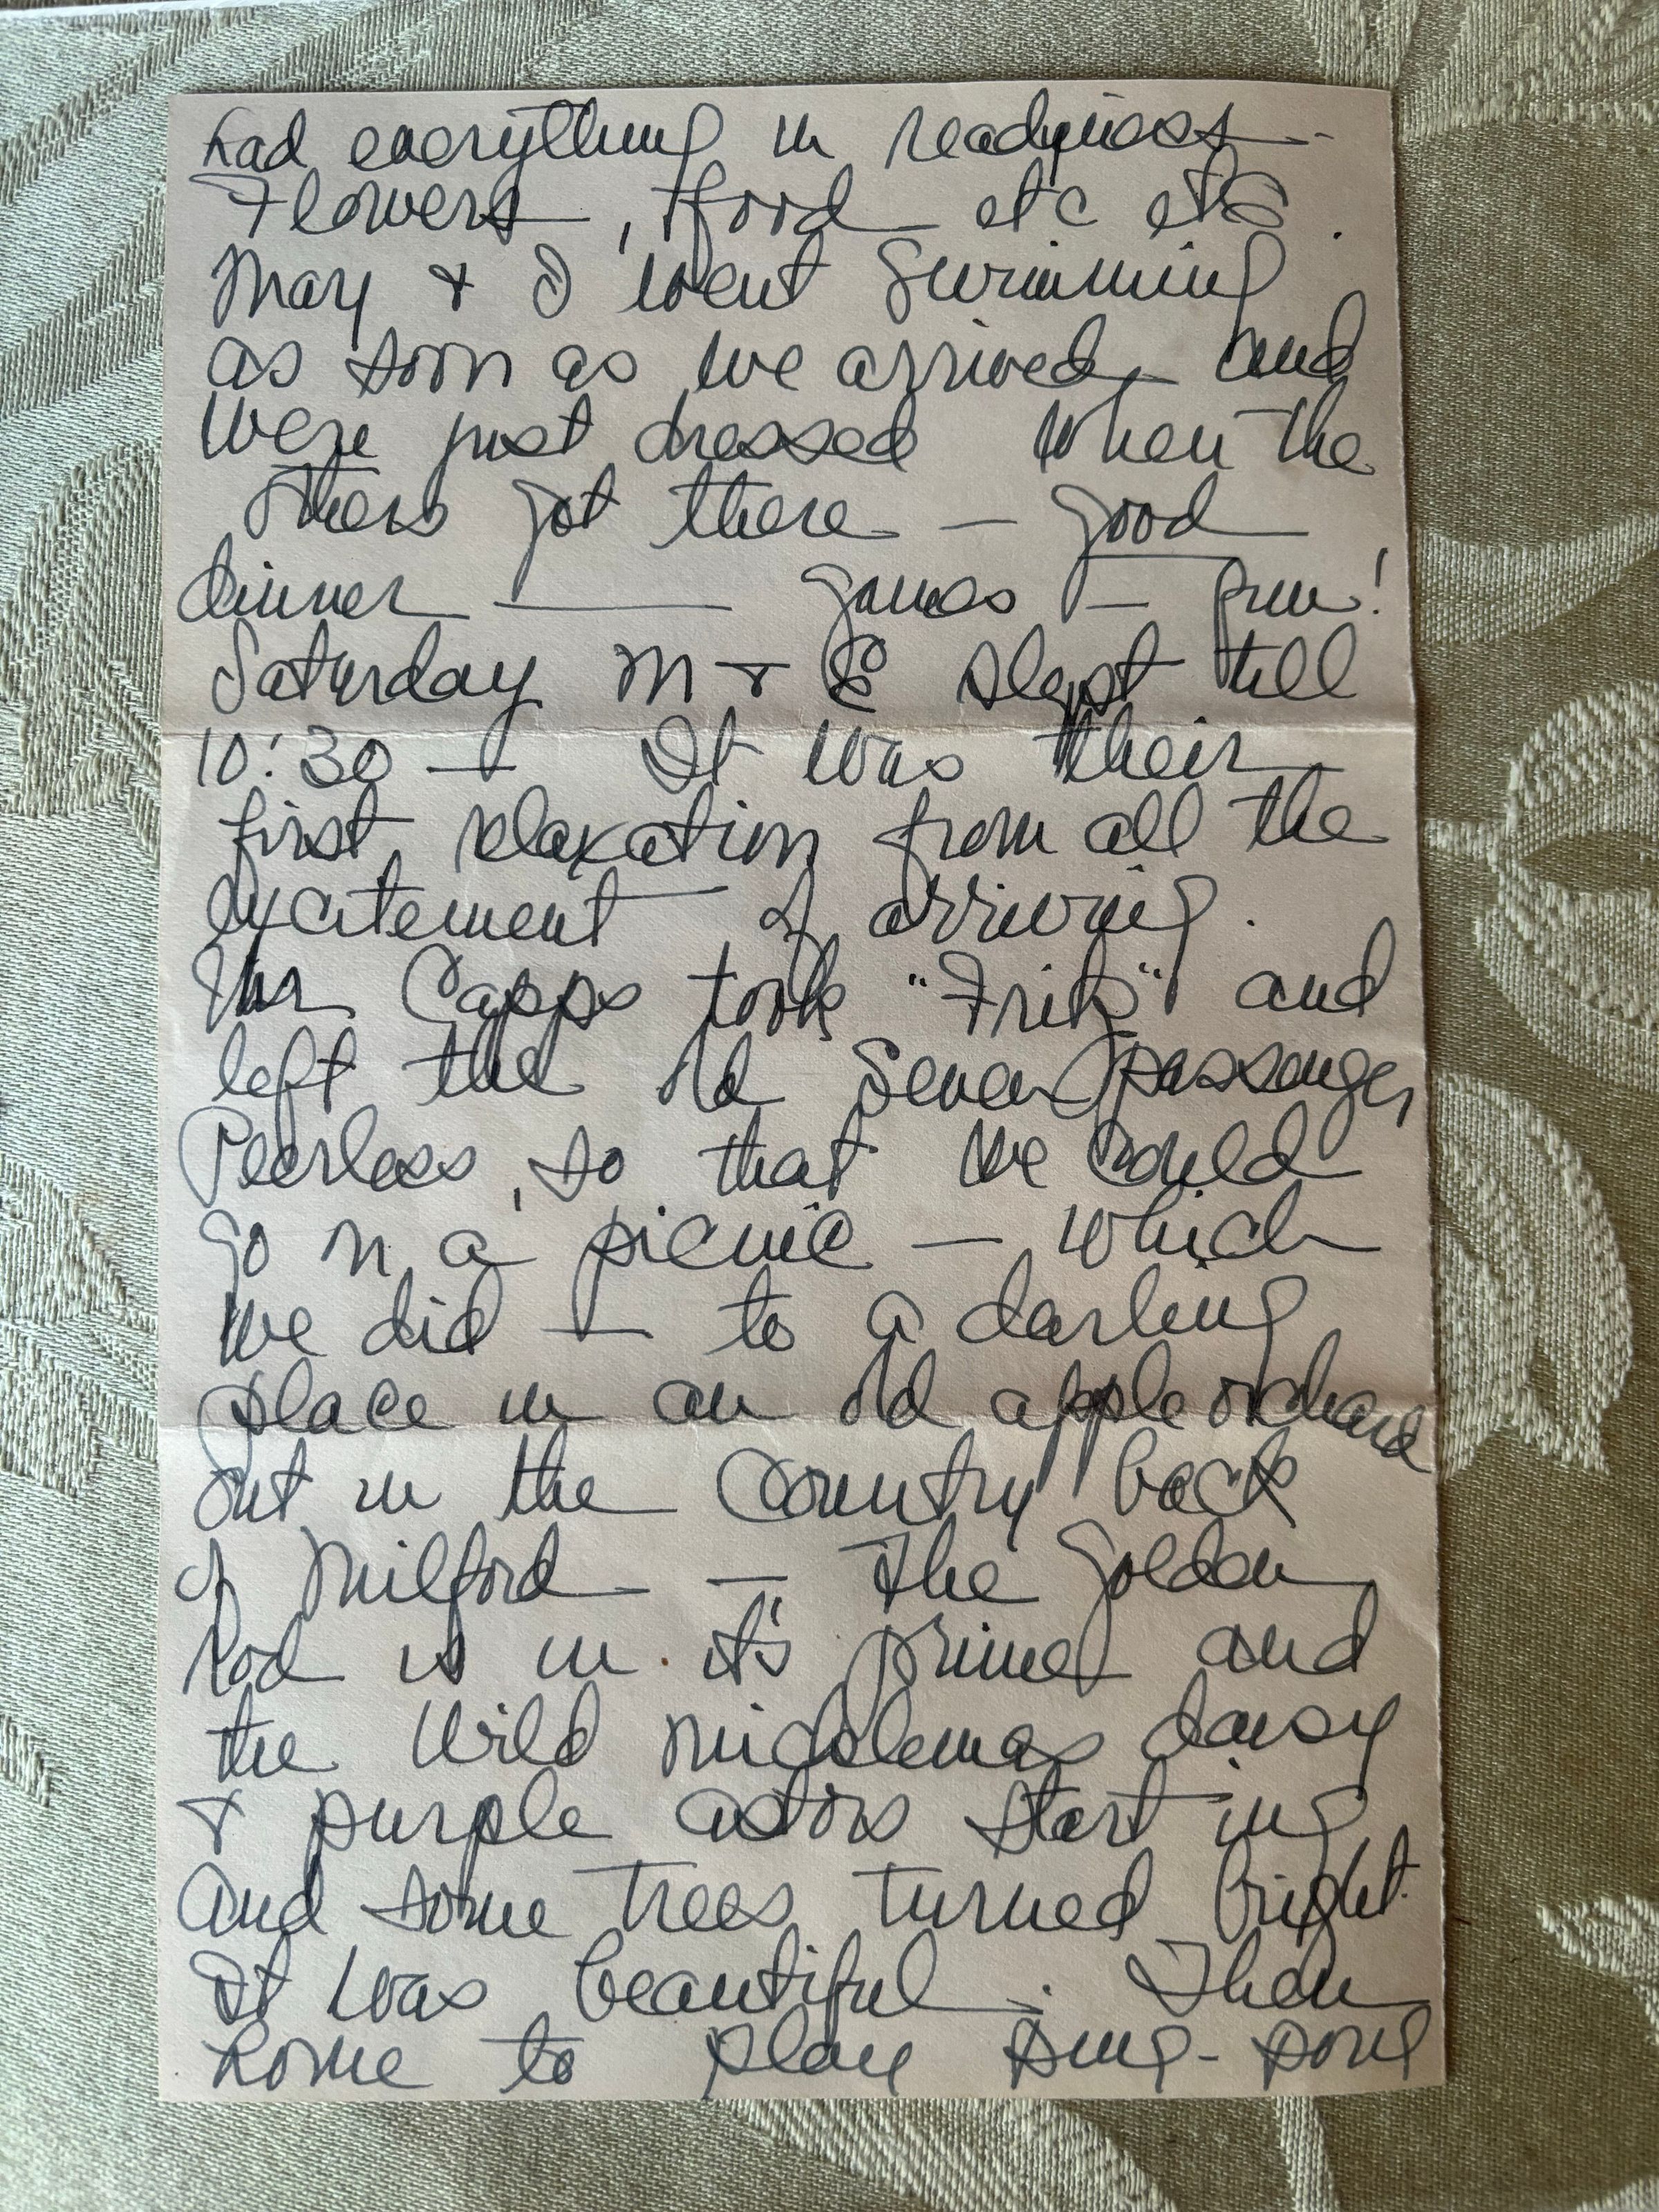 had everything in readyness -
Flowers, food etc etc.
May & I went swimming
as soon as we arrived and
were just dressed when the
others got there — good
dinner — games — fun!
Saturday M & E slept till
10:30 — It was their
first relaxation from all the
excitement of arriving.
Mr Capps took "Fritz" and
left the old seven passenger
Peerless, so that we could
go on a picnic — which
we did — to a darling
place in an old apple orchard
out in the country back
of Milford — The golden
rod is in it's prime and
the wild daisy
& purple astors starting
and some trees turned bright.
It was beautiful. Then
home to play ping-pong